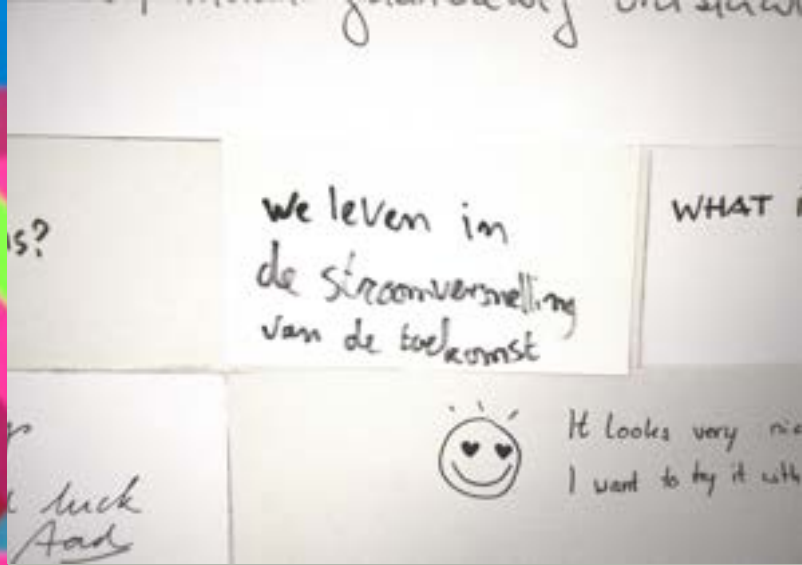 is?
we leven in
de stroomversnelling
van de toekomst
WHAT
luck
Aad
It looks very
I want to try it with